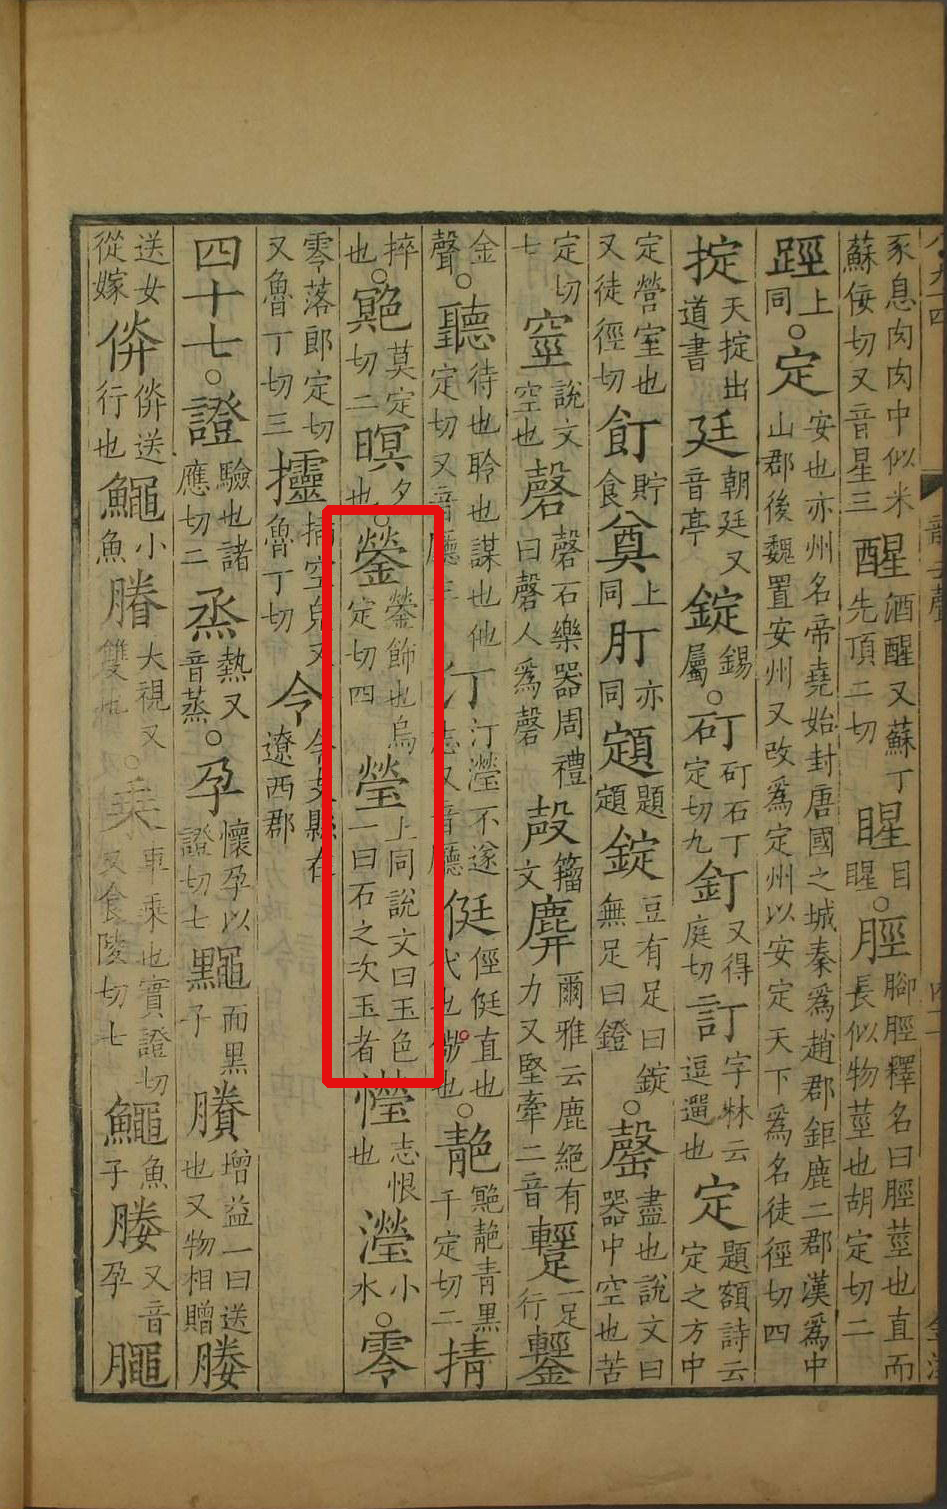 豕息肉肉中似米蘇佞切又音星三醒酒醒又蘇丁先頂二切睲目睲○脛腳脛釋名曰脛莖也直而長似物莖也胡定切二
踁上同○定安也亦州名帝堯始封唐國之城秦為趙郡鉅鹿二郡漢為中山郡後魏置安州又改為定州以安定天下為名徒徑切四
掟天掟出道書廷朝廷又音亭錠錫屬○矴矴石丁定切九釘又得庭切訂字林云逗遛也定題額詩云定之方中
定營室也又徒徑切飣貯食奠上同亦同顁題顁錠豆有足曰錠無足曰鐙○罄盡也說文曰器中空也苦
定切七說文空也磬磬石樂器周禮曰磬人為磬殸籀文麉爾雅云鹿絕有力又堅牽二音一足行鑋
金聲○聽待也聆也謀也他定切又音廳三汀汀瀅不遂志又音廳侹俓侹直也代也也○靘靘青黑千定切二掅
捽也○莫定切二暝夕也○鎣鎣飾也烏定切四瑩上同說文曰玉色一曰石之次玉者志恨也瀅小水○零
零落郎定切又魯丁切三插空皃又魯丁切令令支縣在遼西郡
四十七○證驗也諸應切二烝熱又音蒸○孕懷孕以證切七面黑子賸增益一曰送也又物相贈媵
送女從嫁倂倂送行也鱦小魚大視又雙也○乗車乗也實證切又食陵切七鱦魚子媵又音孕